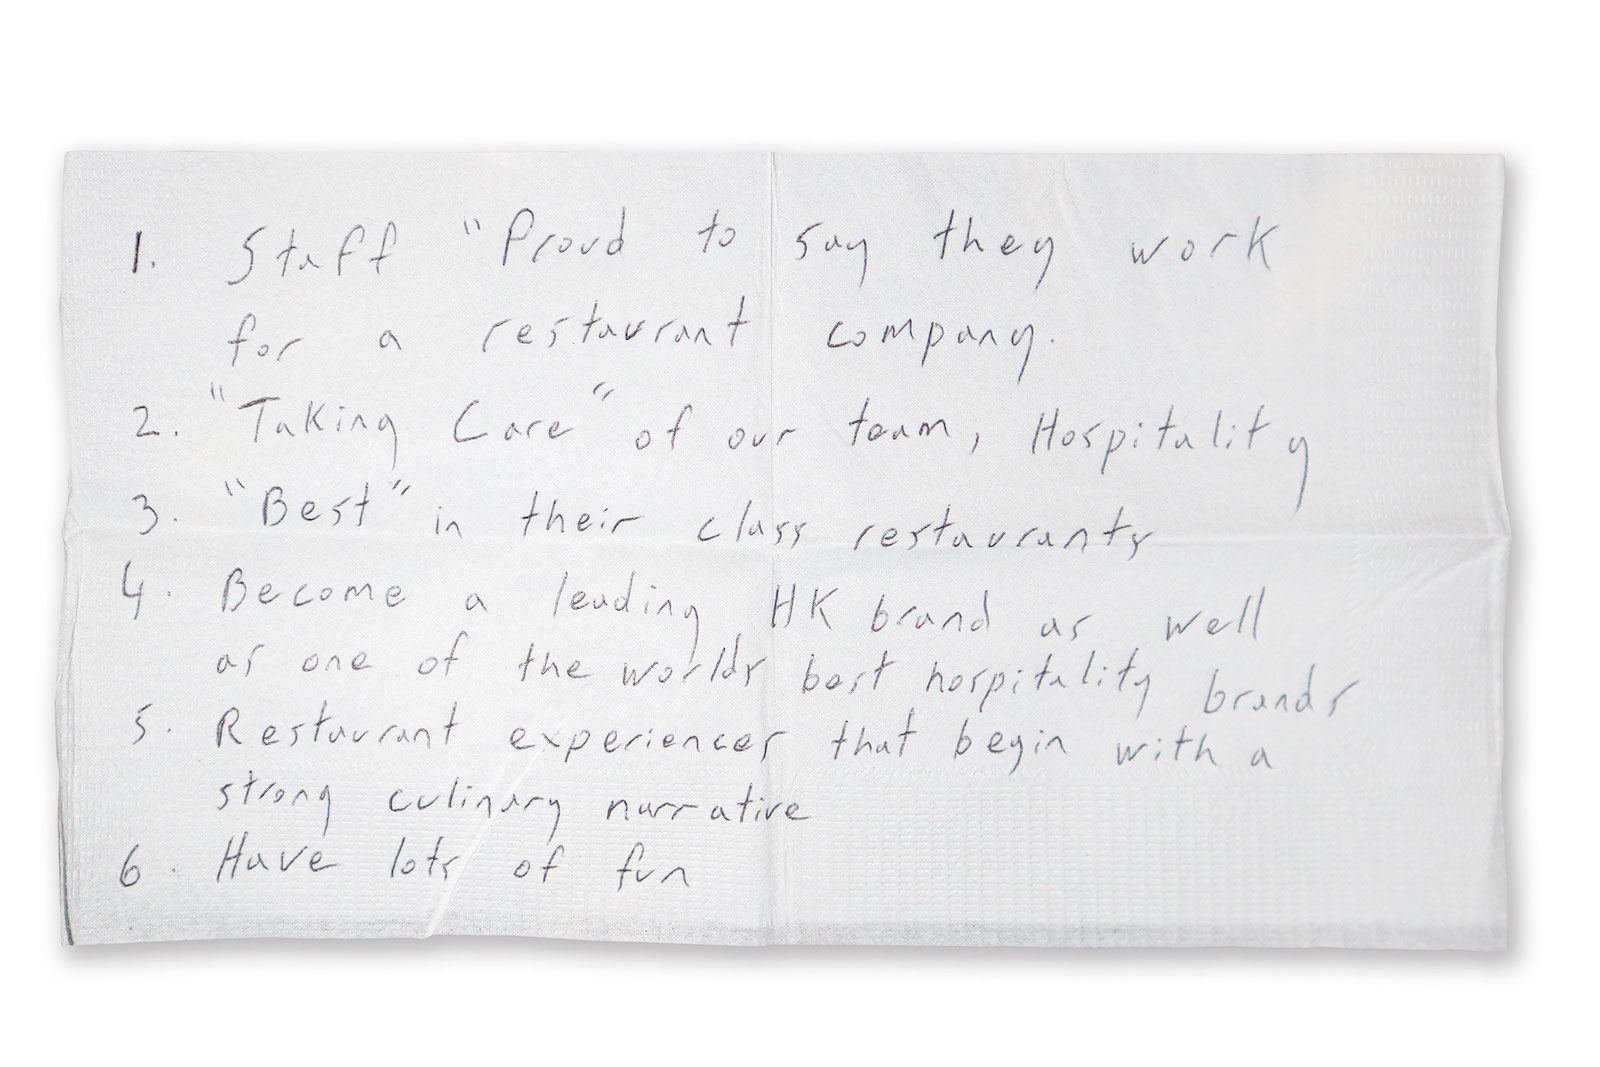 1. Staff "Proud to say they work
for a restaurant company.
2. "Taking Care" of our team, Hospitality
3. "Best" in their class restaurants
4. Become a leading HK brand as well
as one of the worlds best hospitality brands
5. Restaurant experiences that begin with a
strong culinary narrative
6. Have lots of fun